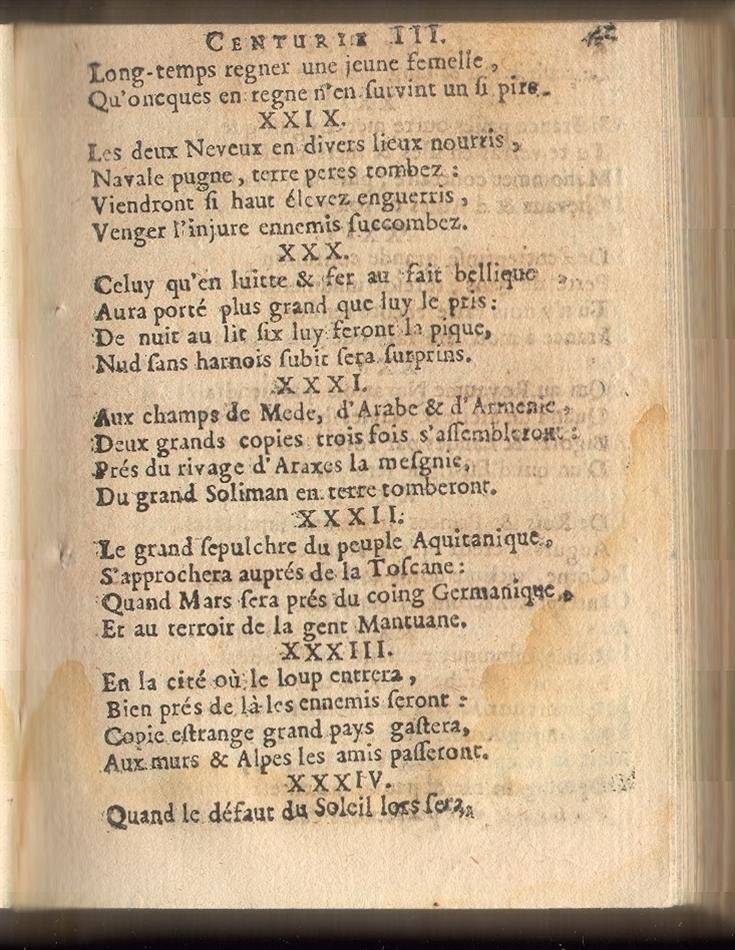 CENTURIE III.
Long-temps regner une jeune femelle,
Qu'oncques en regne n'en ſurvint un ſi pire.
XXIX.
Les deux Neveux en divers lieux nourris,
Navale pugne, terre peres tombez:
Viendront ſi haut élevez enguerris,
Venger l'injure ennemis ſuccombez.
XXX.
Celuy qu'en luitte & fer au fait bellique,
Aura porté plus grand que luy le pris:
De nuit au lit ſix luy feront la pique,
Nud ſans harnois ſubit ſera ſurprins.
XXXI.
Aux champs de Mede, d'Arabe & d'Armenie,
Deux grands copies trois fois s'aſſembleront:
Prés du rivage d'Araxes la meſgnie,
Du grand Soliman en terre tomberont.
XXXII.
Le grand ſepulchre du peuple Aquitanique,
S'approchera auprés de la Toſcane:
Quand Mars ſera prés du coing Germanique,
Et au terroir de la gent Mantuane.
XXXIII.
En la cité où le loup entrera,
Bien prés de là les ennemis ſeront:
Copie eſtrange grand pays gaſtera,
Aux murs & Alpes les amis paſſeront.
XXXIV.
Quand le défaut du Soleil lors ſera,